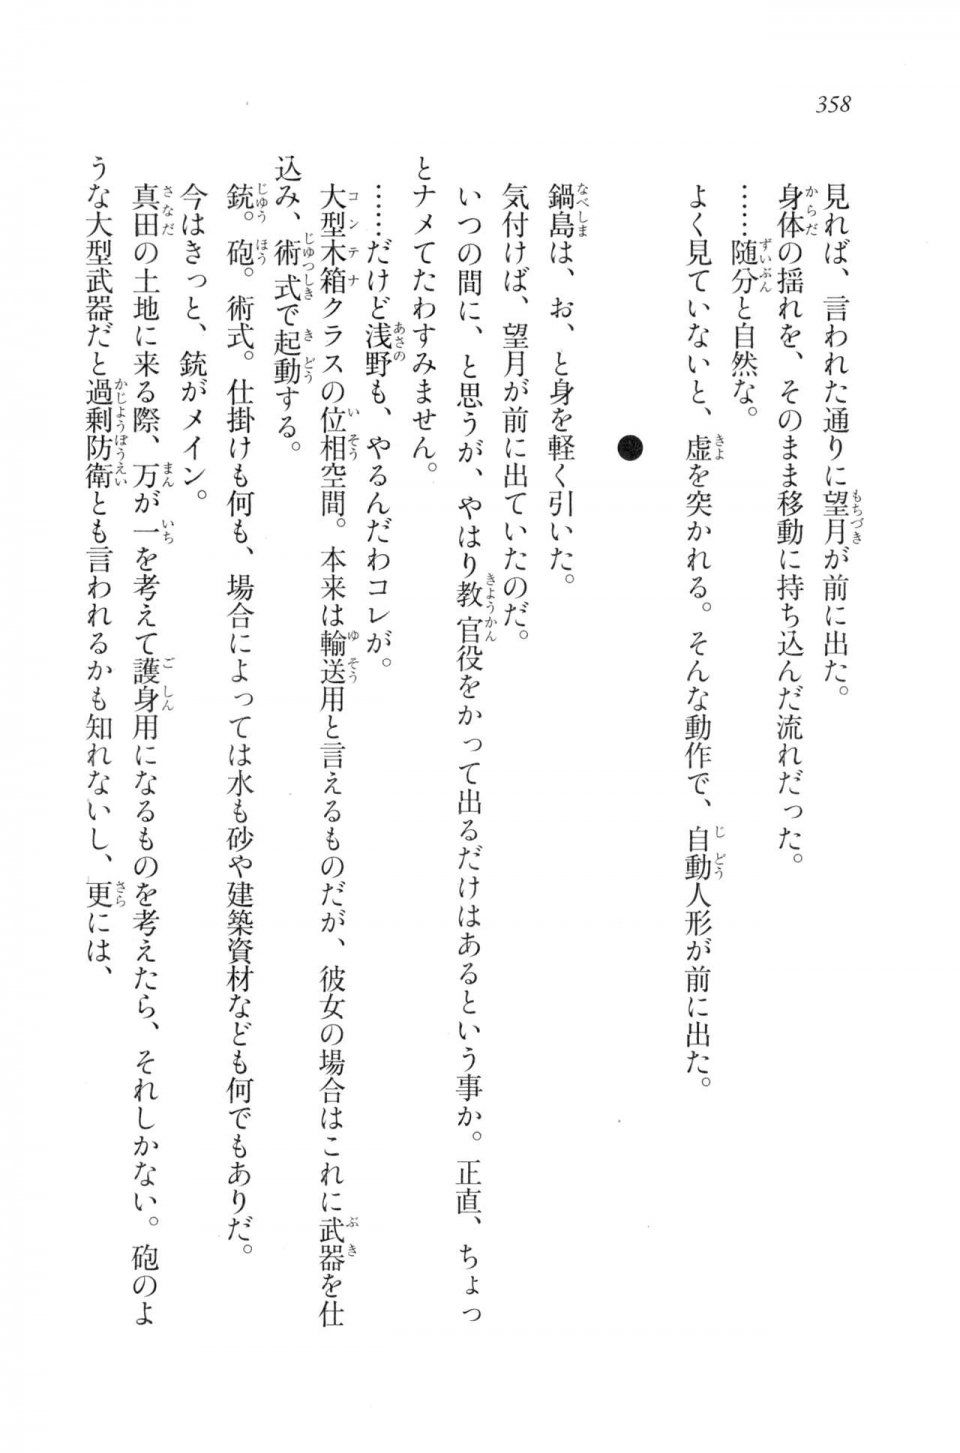 358
見れば、言われた通りに望月が前に出た。
身体の揺れを、そのまま移動に持ち込んだ流れだった。
……随分と自然な。
よく見ていないと、虚を突かれる。そんな動作で、自動人形が前に出た。
●
鍋島は、お、と身を軽く引いた。
気付けば、望月が前に出ていたのだ。
いつの間に、と思うが、やはり教官役をかって出るだけはあるという事か。正直、ちょっ
とナメてたわすみません。
……だけど浅野も、やるんだわコレが。
大型木箱クラスの位相空間。本来は輸送用と言えるものだが、彼女の場合はこれに武器を仕
込み、術式で起動する。
銃。砲。術式。仕掛けも何も、場合によっては水も砂や建築資材なども何でもありだ。
今はきっと、銃がメイン。
真田の土地に来る際、万が一を考えて護身用になるものを考えたら、それしかない。砲のよ
うな大型武器だと過剰防衛とも言われるかも知れないし、更には、